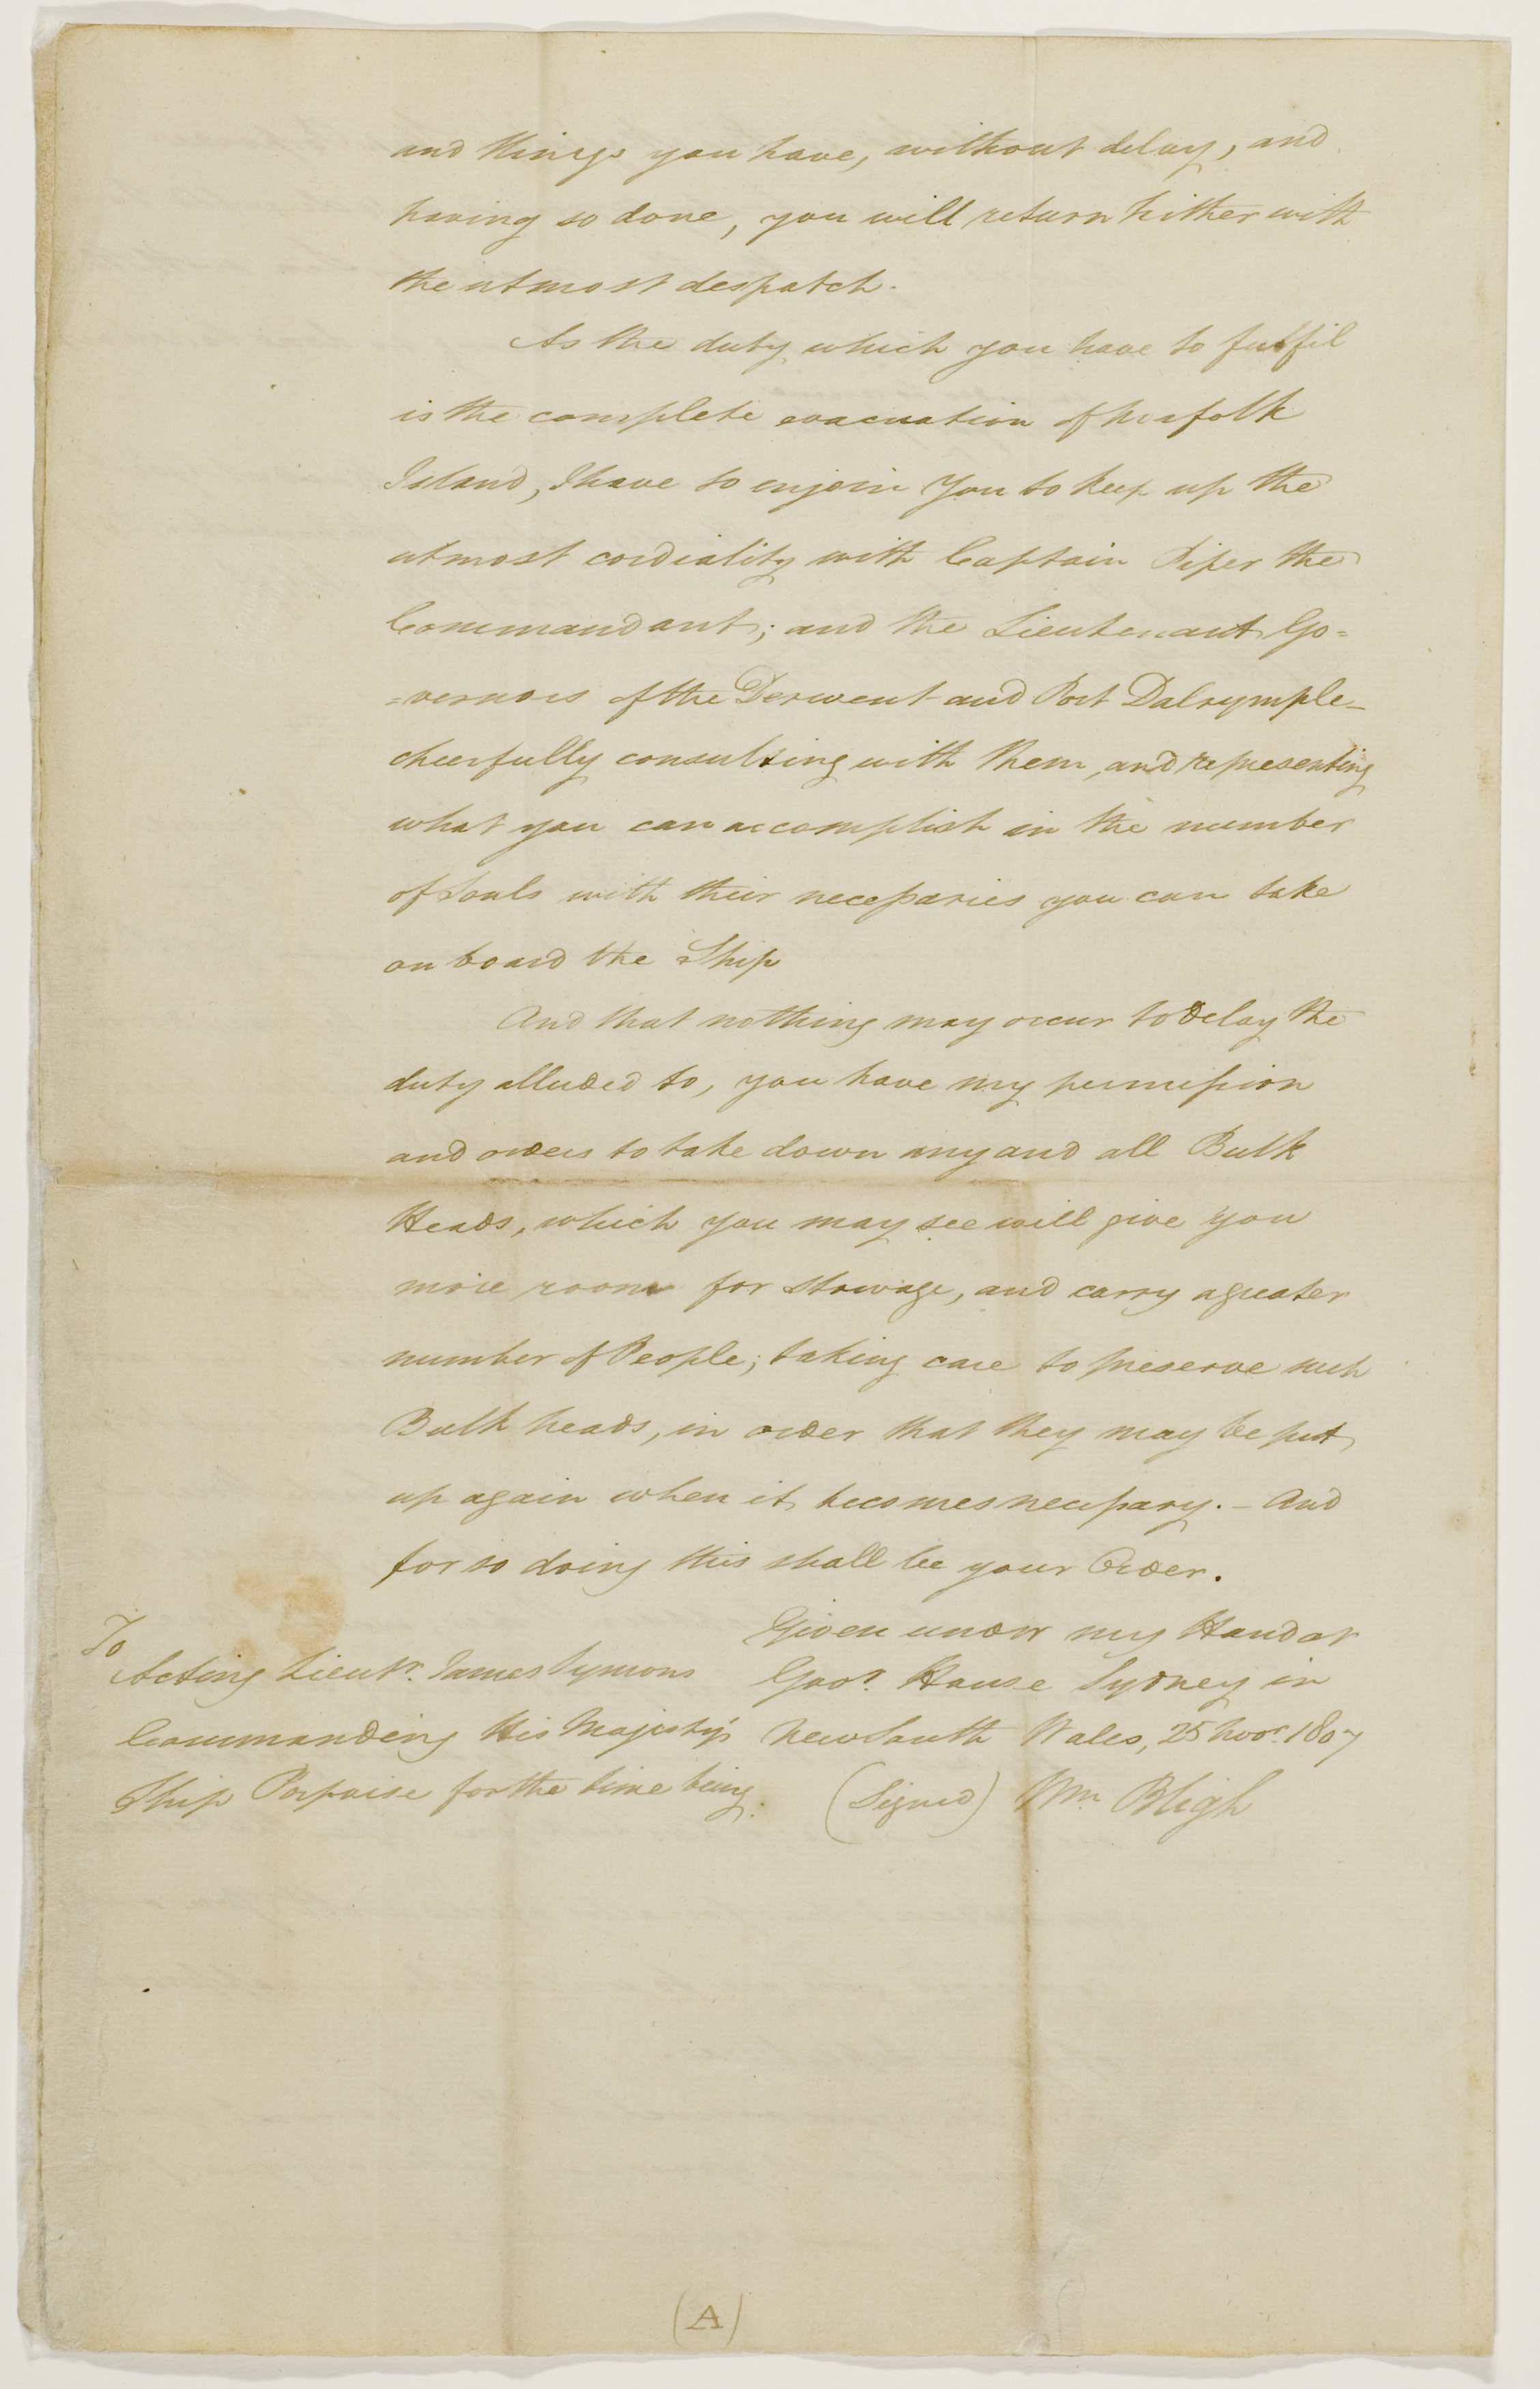 and things you have, without delay, and
having so done, you will return hither with
the utmost despatch.
As the duty which you have to fulfil
is the complete evacuation of Norfolk
Island, I have to enjoin You to keep up the
utmost cordiality with Captain Piper the
Commandant; and the Lieutenant Go=
=vernors of the Derwent and Port Dalrymple_
cheerfully consulting with them, and representing
what you can accomplish in the number
of Souls with their necessaries you can take
on board the Ship
And that nothing may occur to delay the
duty alluded to, you have my permission
and orders to take down any and all Bulk
Heads, which you may see will give you
more room for stowage, and carry a greater
number of People; taking care to preserve such
Bulk heads, in order that they may be put
up again when it becomes necessary. _ And
for so doing this shall be your Order.
Given under my Hand at
Govr. House Sydney in
New South Wales, 25 Novr. 1807
(Signed) Wm. Bligh
To
Acting Lieutt. James Symons
Commanding His Majesty's
Ship Porpoise for the time being.
(A)